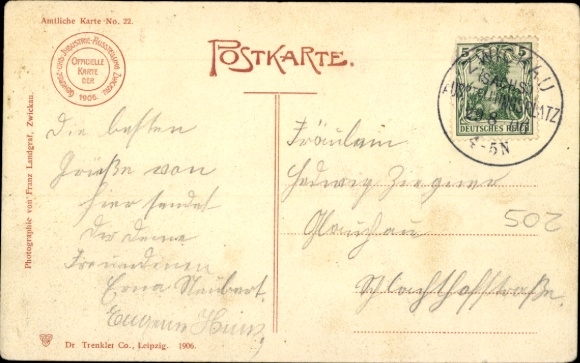 Amtliche Karte No. 22.
GEWERBE- UND INDUSTRIE-AUSSTELLUNG ZWICKAU
OFFICIELLE
KARTE
DER
1906.
POSTKARTE.
5 5
DEUTSCHES REICH
ZWICKAU
(SACHSEN)
AUSSTELLUNGSPLATZ
29 8 06
4-5N
Die besten
Grüße von
hier sendet
Dir Deine
Freundinen
Erna Neubert.
Eugenie
Fräulein
Hedwig Ziegner
Glauchau
Schlachthofstraße.
502
Photographie von Franz Landgraf, Zwickau.
Dr Trenkler Co., Leipzig. 1906.